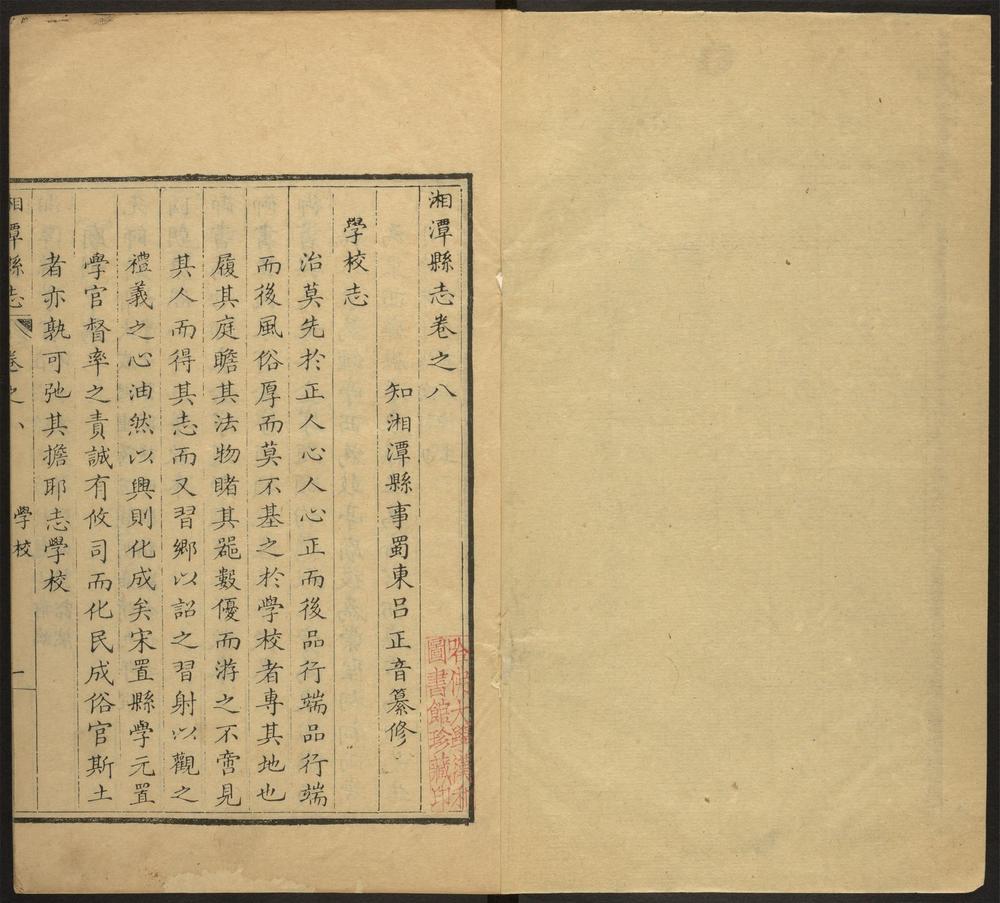 湘潭縣志卷之八
知湘潭縣事蜀東呂正音纂修
學校志
治莫先於正人心人心正而後品行端品行端
而後風俗厚而莫不基之於學校者專其地也
履其庭瞻其法物睹其噐數優而游之不啻見
其人而得其志而又習鄉以詔之習射以觀之
禮義之心油然以興則化成矣宋置縣學元置
學官督率之責誠有攸司而化民成俗官斯土
者亦孰可弛其擔耶志學校
湘潭縣志
卷之八
學校
一
哈佛大學漢和
圖書館珍藏印